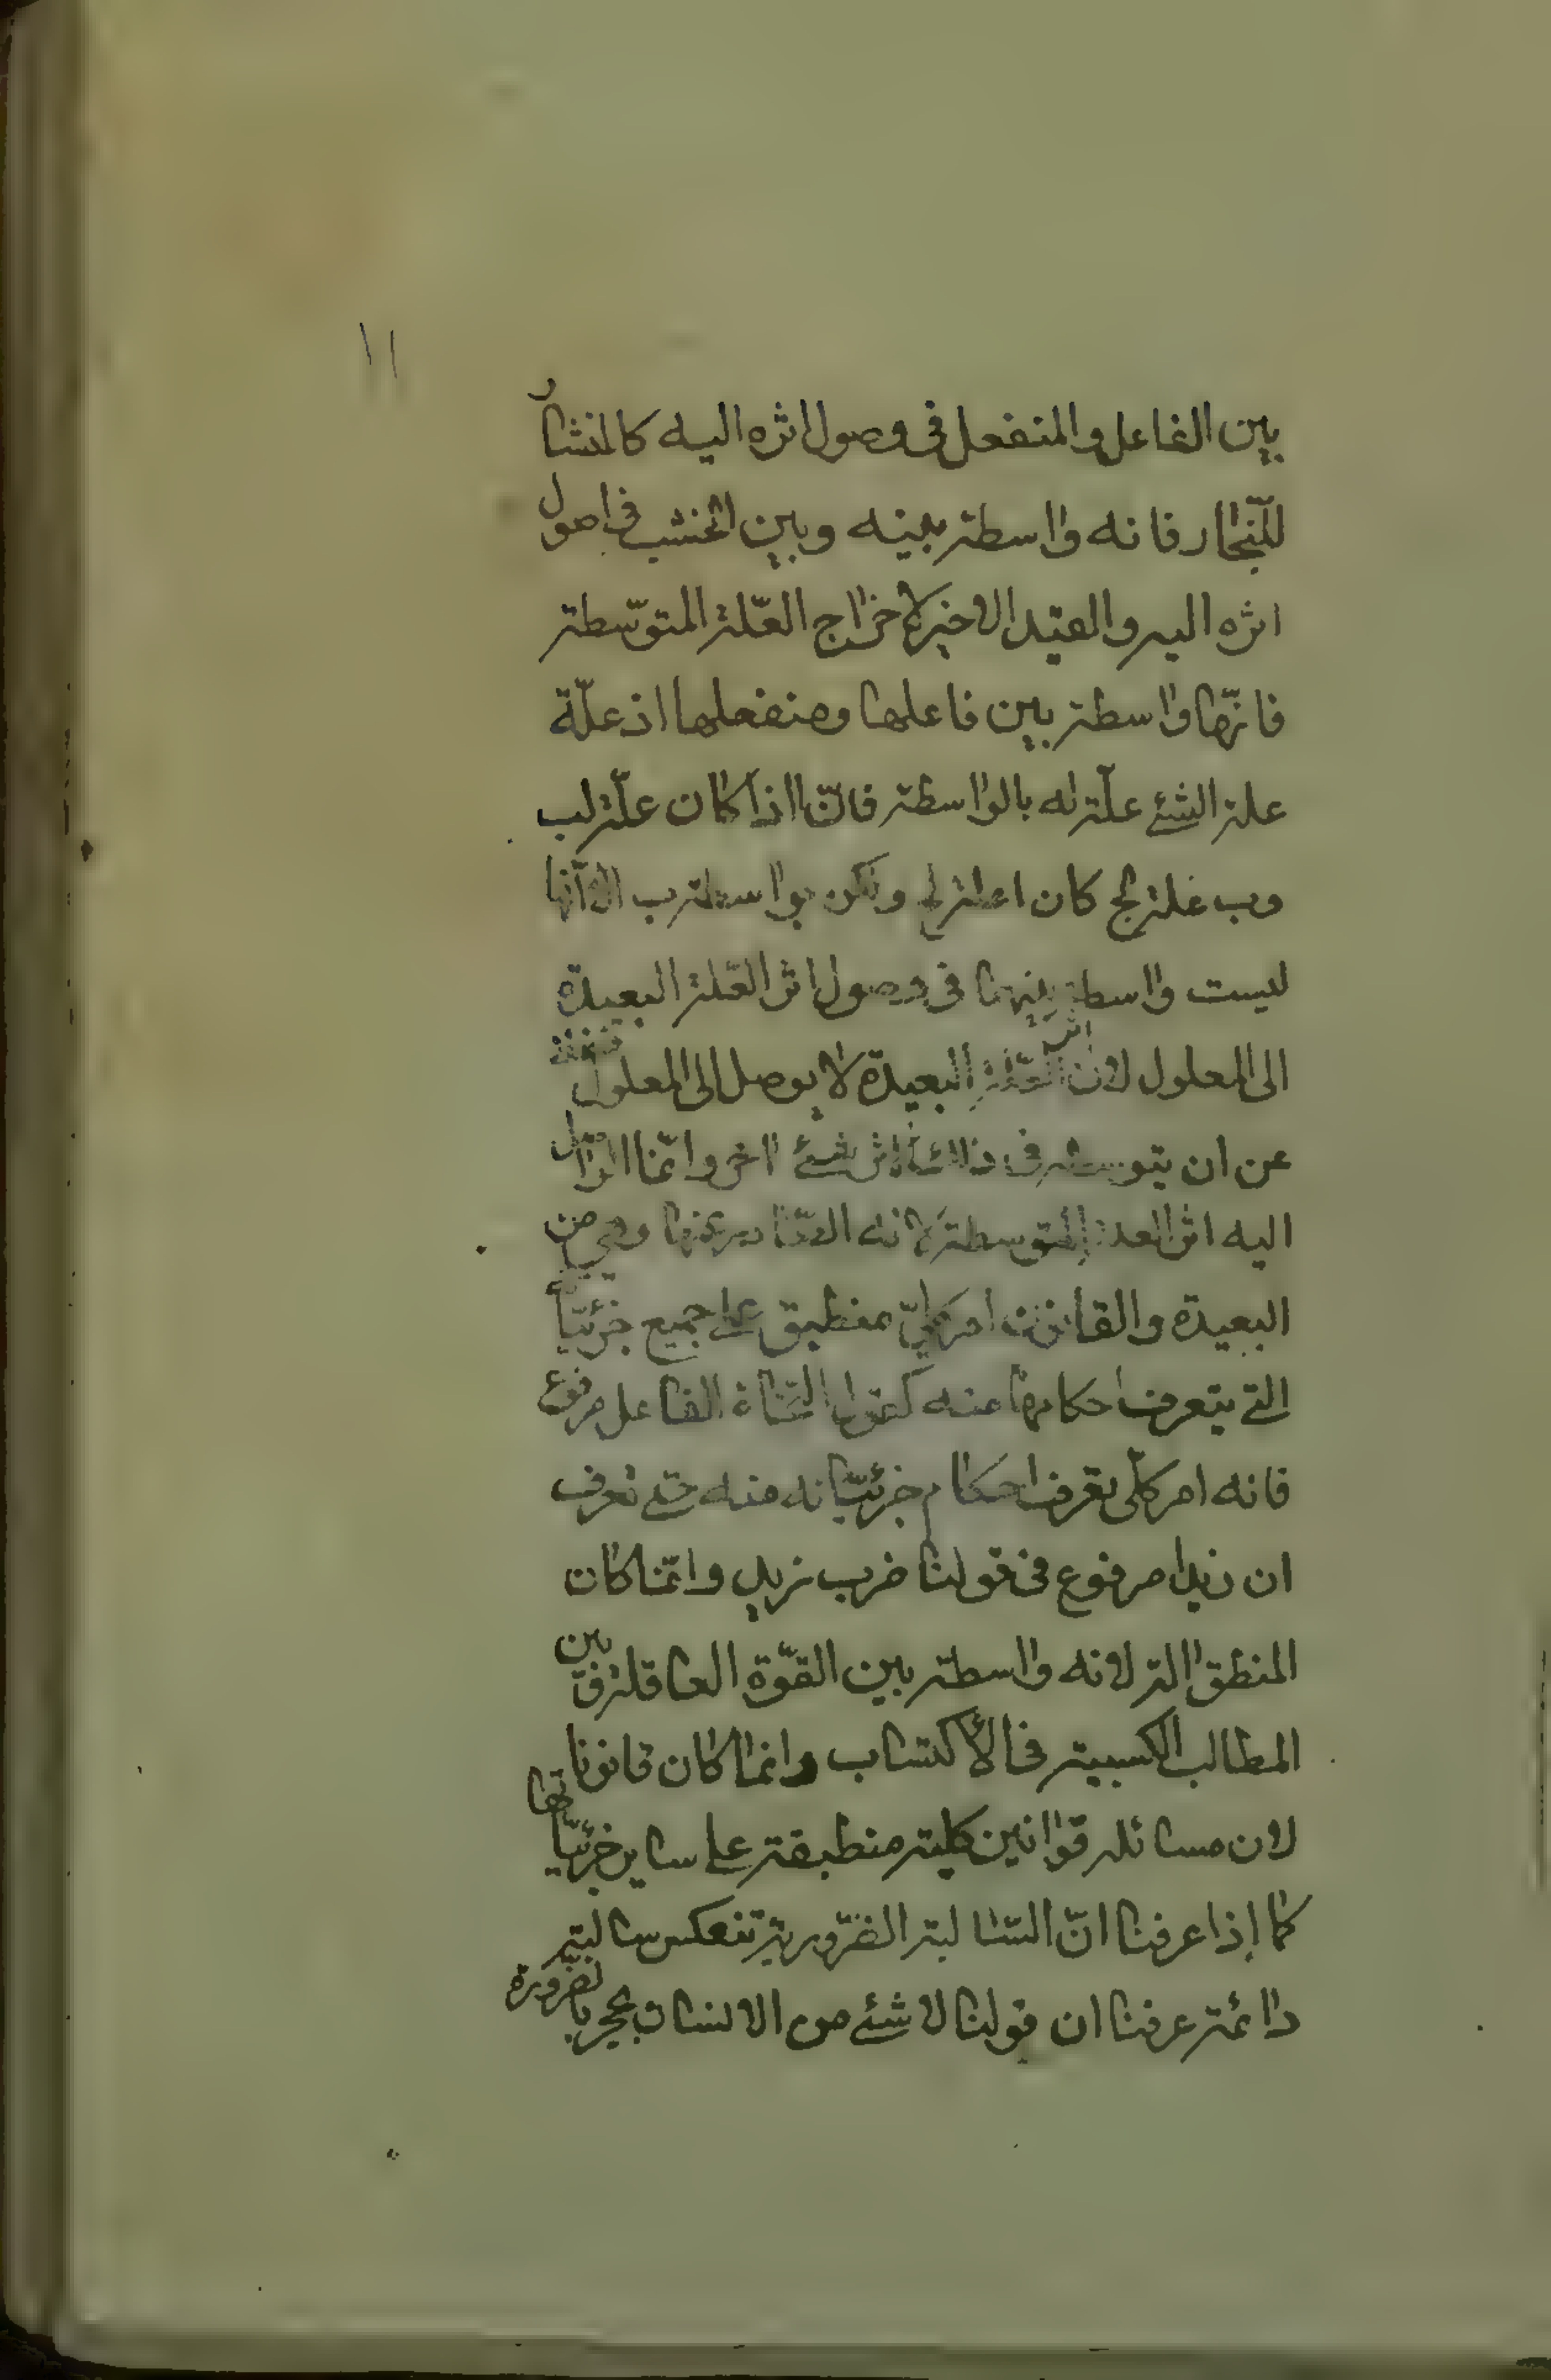 ١١
بين الفاعل والمنفعل فى وصول اثره اليه كالمنشار
للنّجار فانه واسطة بينه وبين الخشب فى اصول
اثره اليه والقيد الاخير لاخراج العلّة المتوسّطة
فانّها واسطة بين فاعلها ومنفعلها اذ علّة
علة الشئ علّة له بالواسطة فانّ ا اذا كان علّة لب
وب علة لج كان ا علة لج ولكن بواسطة ب الا انّها
ليست واسطة بينهما فى وصول اثر العلّة البعيدة
الى المعلول لان اثر العلّة البعيدة لا يوصل الى المعلول فضلا
عن ان يتوسط فى ذلك شئ اخر وانّما الواصل
اليه اثر العلة المتوسطة لانه الصّادر منها وهى من
البعيدة والقانون امر كلىّ منطبق على جميع جزئيّاته
التى يتعرف احكامها عنه كقول النّحاة الفاعل مرفوع
فانه امر كلّى يتعرف احكام جزئيّاته منه حتى تعرف
ان زيدا مرفوع فى قولنا ضرب زيد وانّما كان
المنطق الة لانه واسطة بين القوّة العاقلة وبين
المطالب الكسبية فى الأكتساب وانما كان قانونا
لان مسائله قوانين كلية منطبقة على ساير جزئيّاتها
كما إذا عرفنا انّ السّالبة الضّرورية تنعكس سالبة
دائمة عرفنا ان قولنا لا شئ من الانسان بحجر بالضرورة